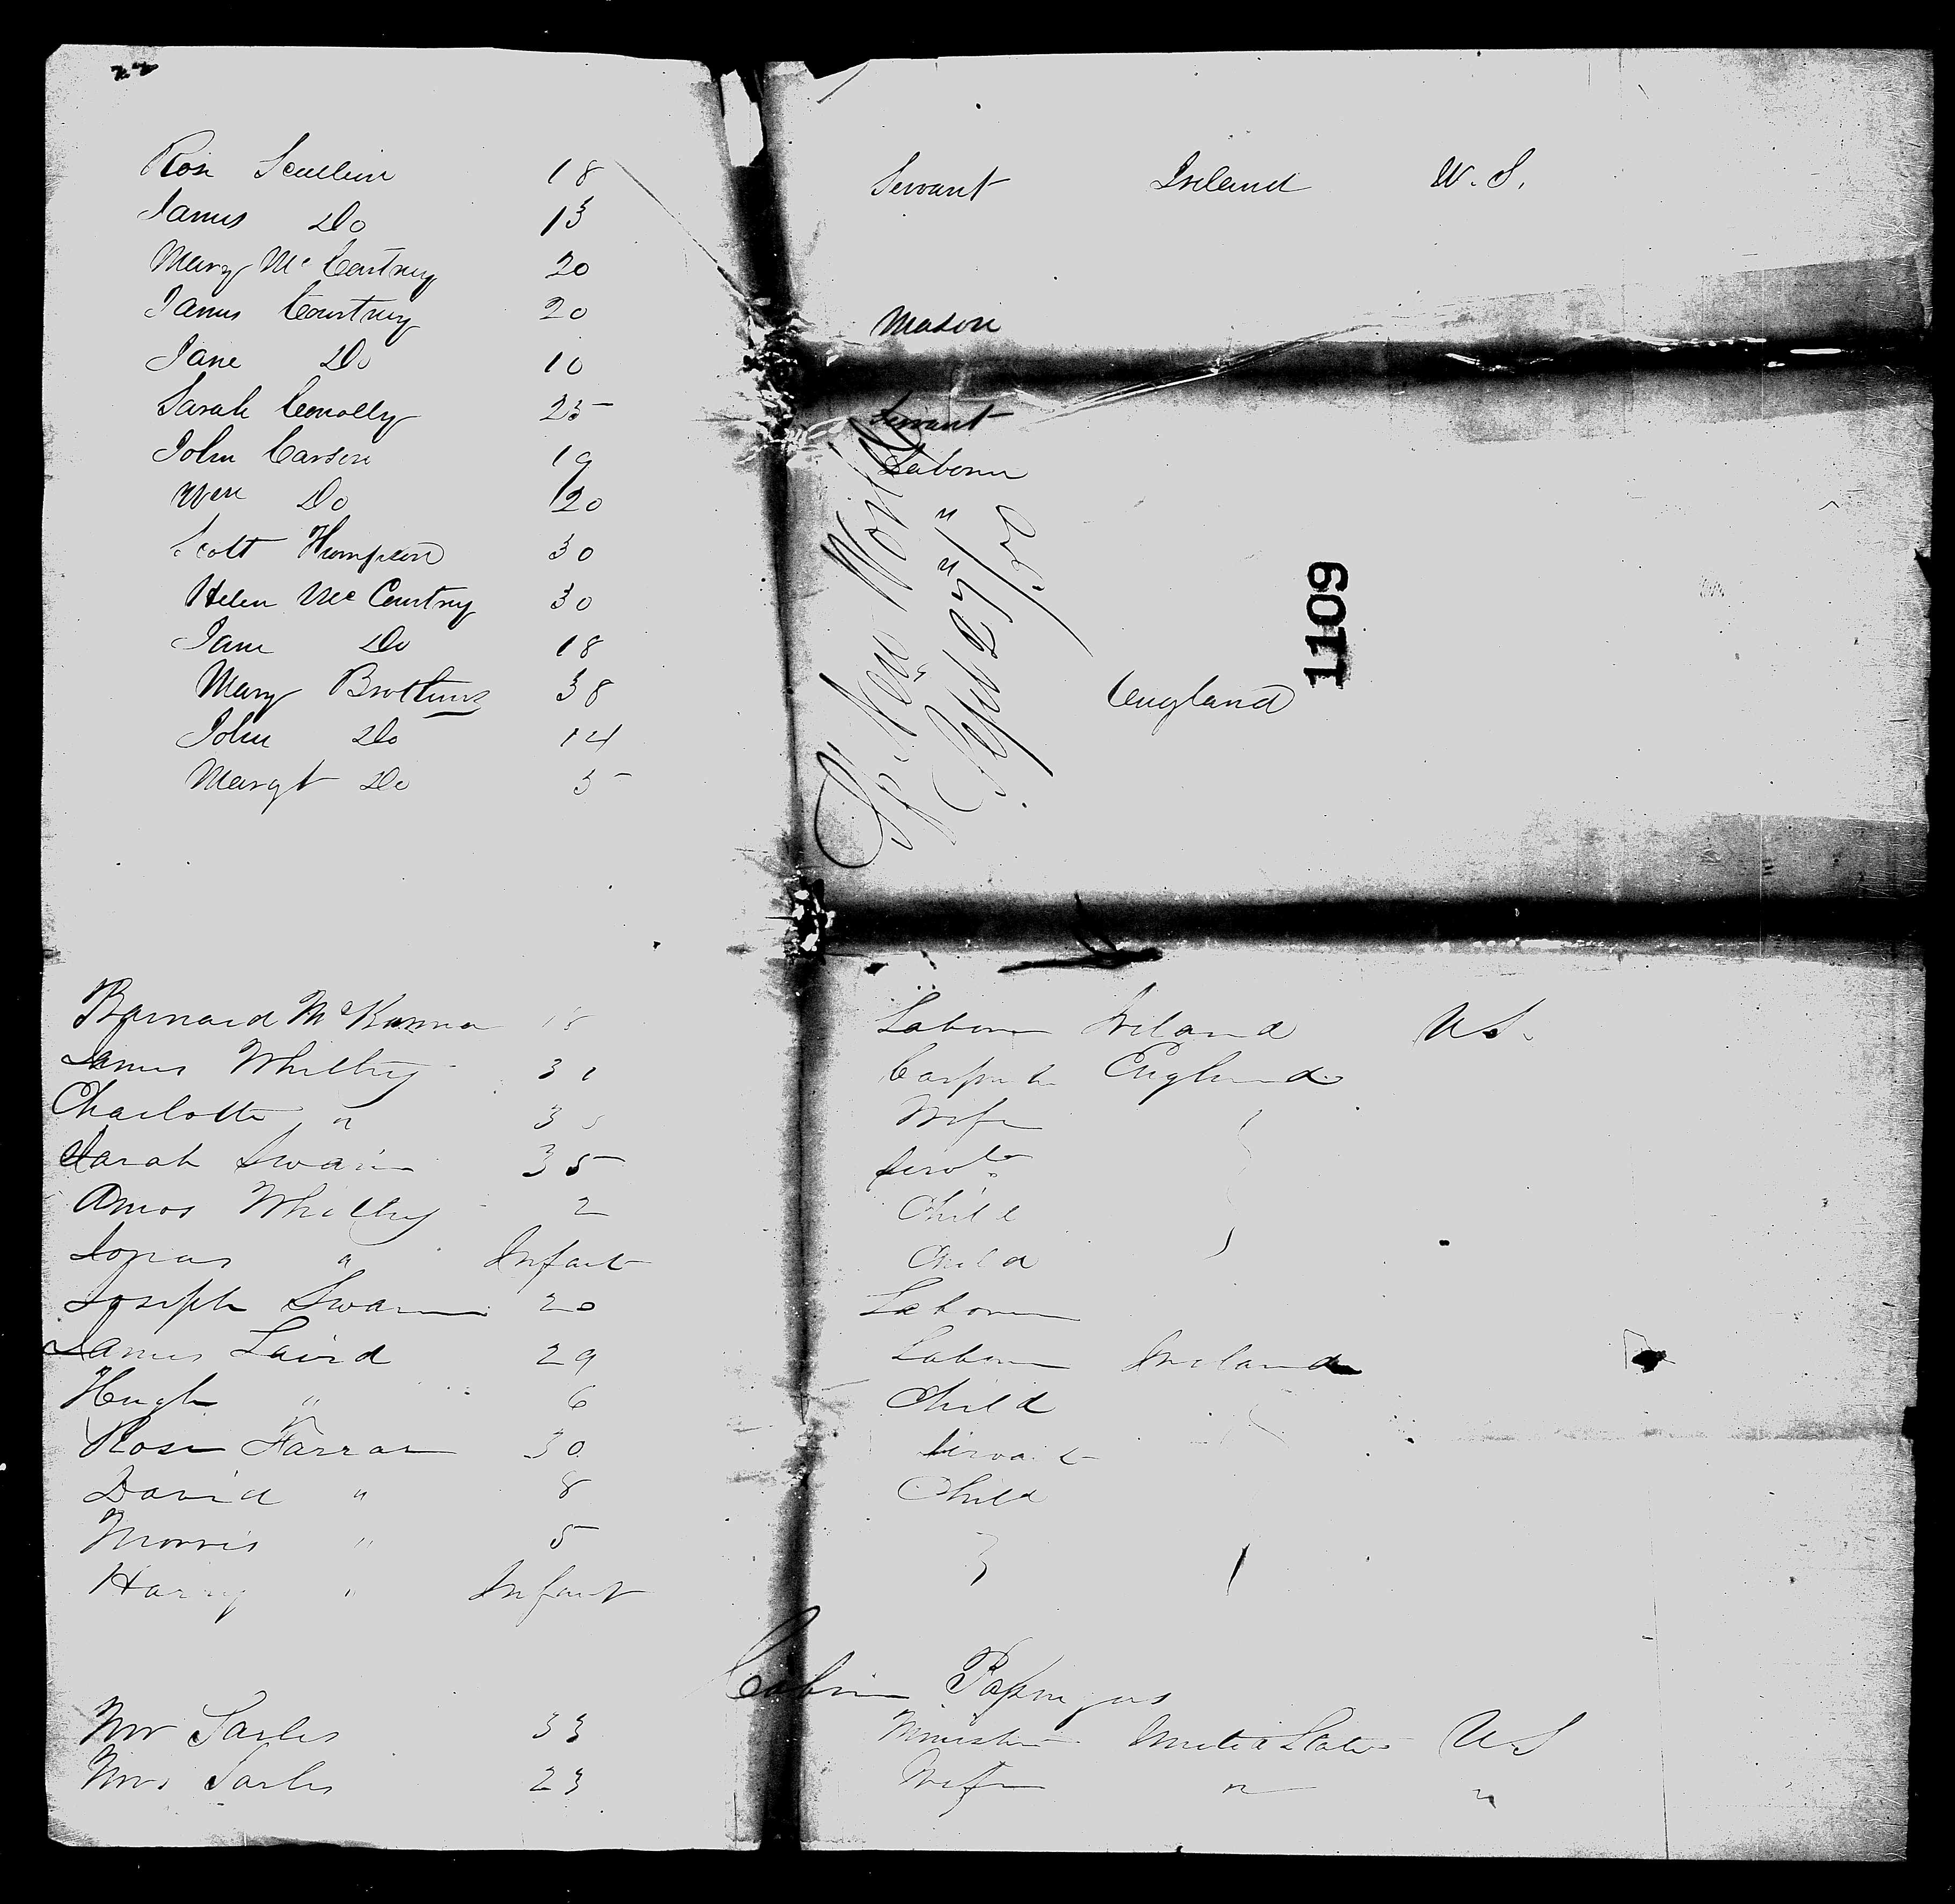 Rose Scullin 18 Servant Ireland U.S.
James Do 13
Mary McCourtney 20
James Courtney 20 Mason
Jane Do 10
Sarah Conolly 25 Servant
John Carson 19 Laborer
Wm Do 20
Scott Thompson 30
Helen McCourtney 30
Jane Do 18
Mary Brothers 38 England
John Do 14
Margt Do 5
Sp. New World
Sept 27th/50
1109
Barnard McKenna 18 Laborer Ireland US.
James Whitley 31 Carpenter England
Charlotte " 3 Wife
Sarah Swain 35 Servt
Amos Whitley 2 Child
Jonas " Infant Child
Joseph Swain 20 Laborer
James Laird 29 Laborer Ireland
Hugh " 6 Child
Rose Farran 30 Servant
David " 8 Child
Morris " 5
Harry " Infant
Cabin Passengers
Mr Sarles 33 Minister United States US
Mrs Sarles 23 Wife " "